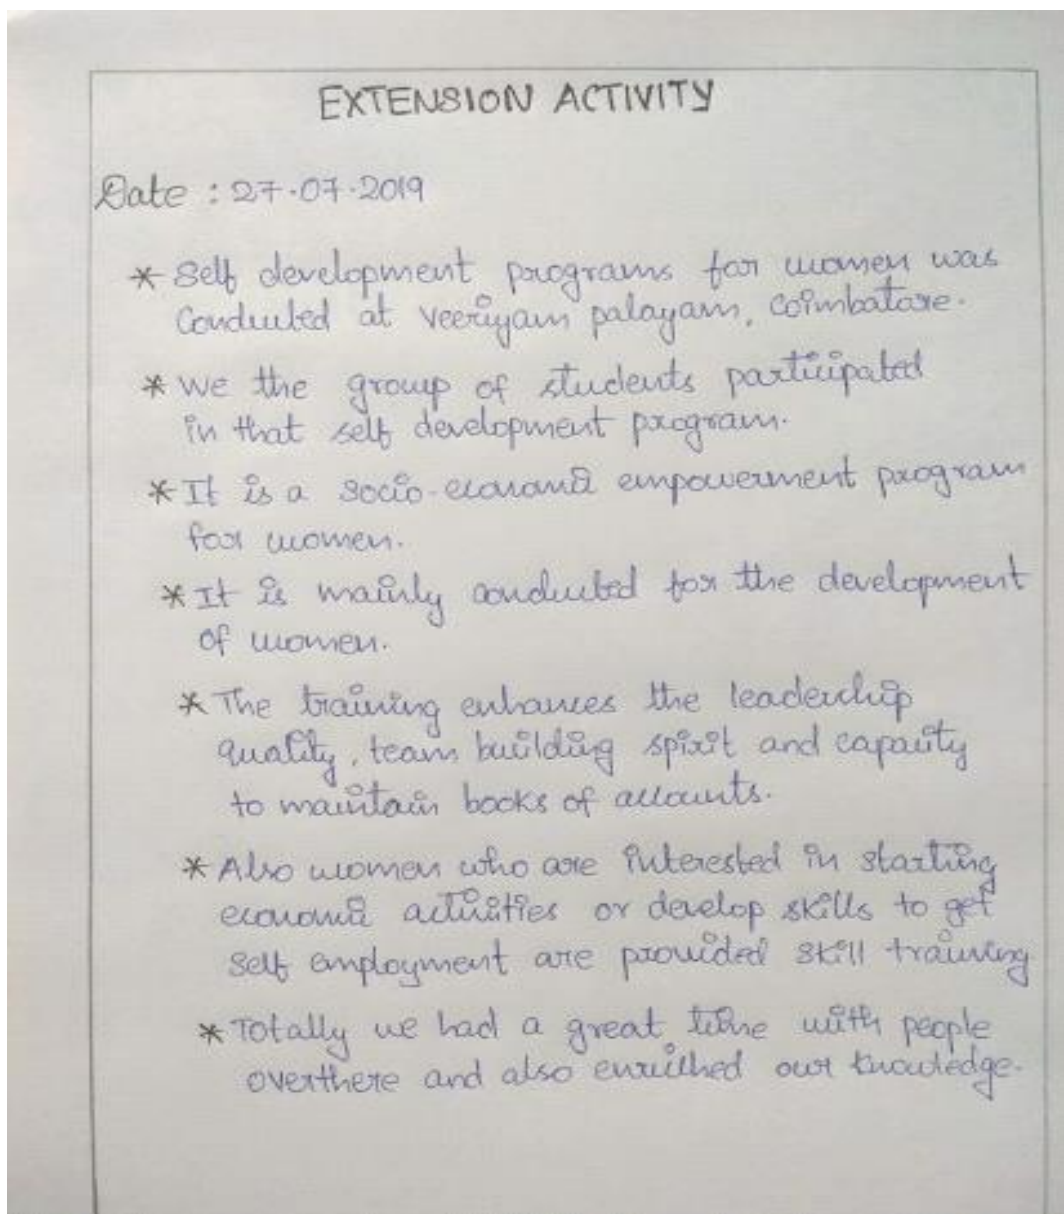 EXTENSION ACTIVITY
Date : 27.07.2019
* Self development programs for women was
Conducted at Veeriyam palayam, Coimbatore.
* We the group of students participated
in that self development program.
* It is a socio-economic empowerment program
for women.
* It is mainly conducted for the development
of women.
* The training enhances the leadership
quality, team building spirit and capacity
to maintain books of accounts.
* Also women who are interested in starting
economic activities or develop skills to get
self employment are provided skill training
* Totally we had a great time with people
overthere and also enriched our knowledge.